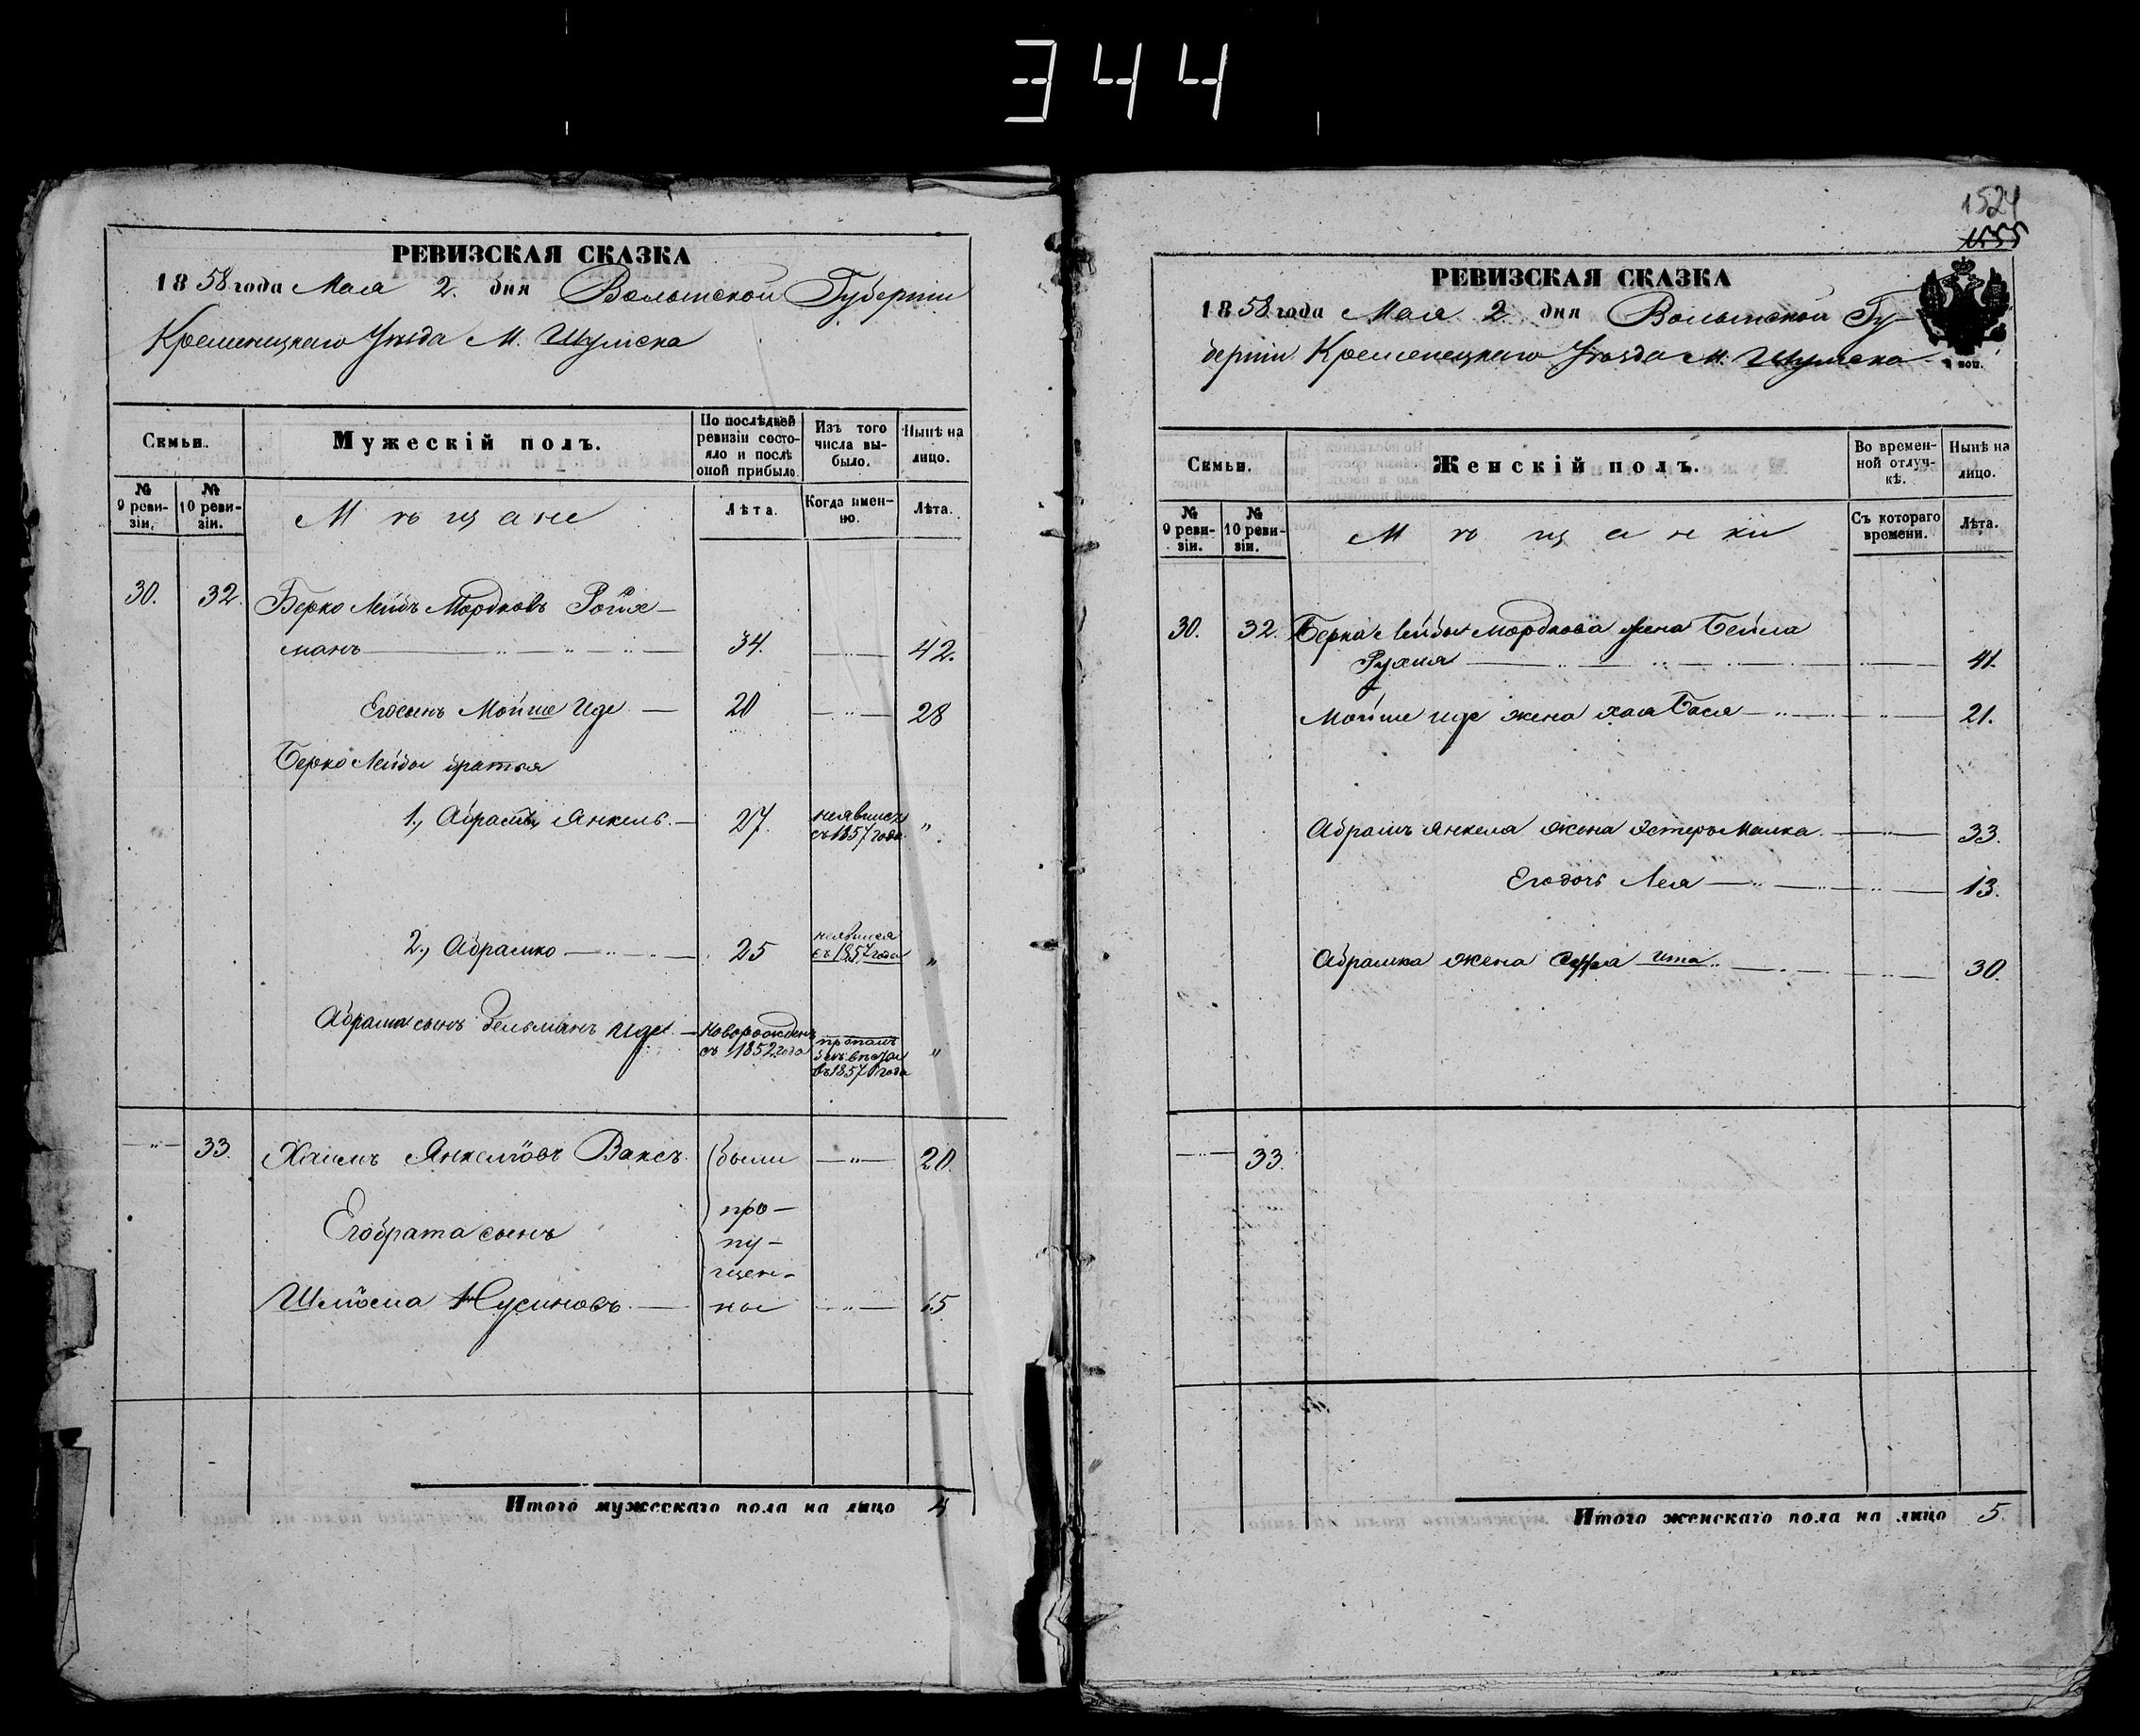 344
РЕВИЗСКАЯ СКАЗКА
1858 года Мая 2. дня Волынской Губерніи
Кременецкаго Уѣзда М. Шумска
Семьи.
Мужескій полъ.
По послѣдней ревизіи состояло и послѣ оной прибыло.
Изъ того числа выбыло.
Нынѣ на лицо.
№ 9 ревизіи.
№ 10 ревизіи.
Мѣщане
Лѣта.
Когда именно.
Лѣта.
30. 32. Берко Лейбъ Мордковъ Ройх-
манъ 34. 42.
Его сынъ Мойше Иде 20 28
Берко Лейбы братья
1., Абрамъ Янкель. 27. неявился съ 1857 года "
2., Абрамко 25 неявился съ 1857 года "
Абрама сынъ Зельманъ Иде новорожденъ съ 1852 года пропалъ безъ вѣсти въ 1857 года "
33. Хаимъ Янкелiовъ Ваксъ. были 20.
Его брата сынъ про-
пу-
щен-
Шлiома Нусиновъ. ны 15
Итого мужескаго пола на лицо 4
1524
1555
РЕВИЗСКАЯ СКАЗКА
1858 года Мая 2 дня Волынской Гу-
берніи Кременецкаго Уѣзда М. Шумска
коп.
Семьи.
Женскій полъ.
Во временной отлучкѣ.
Нынѣ на лицо.
№ 9 ревизіи.
№ 10 ревизіи.
Мѣщанки
Съ котораго времени.
Лѣта.
30. 32. Берка Лейбы Мордкова жена Бейла
Рухля 41.
Мойше Иде жена Хая Бася 21.
Абрамъ Янкеля жена Эстеръ Малка. 33.
Его дочь Лея 13.
Абрамка жена Сура Ита 30.
33.
Итого женскаго пола на лицо 5.